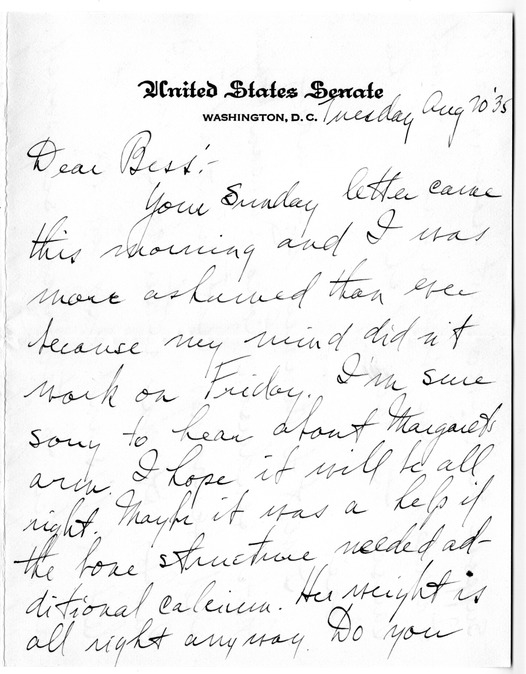 United States Senate
WASHINGTON, D. C.
Tuesday Aug 20 '35
Dear Bess:-
Your Sunday letter came
this morning and I was
more ashamed than ever
because my mind didn't
work on Friday. I'm sure
sorry to hear about Margaret's
arm. I hope it will be all
right. Maybe it was a help if
the bone structure needed ad-
ditional calcium. Her weight is
all right anyway. Do you